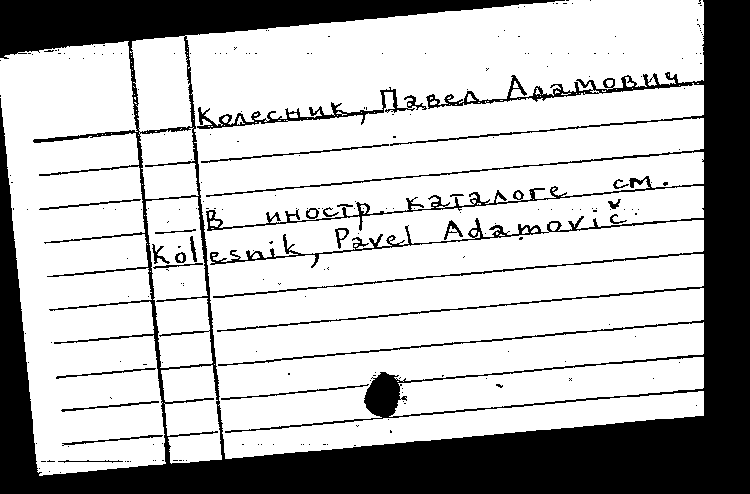 Колесник, Павел Адамович
В иностр. каталоге см.
Kolesnik, Pavel Adamovič